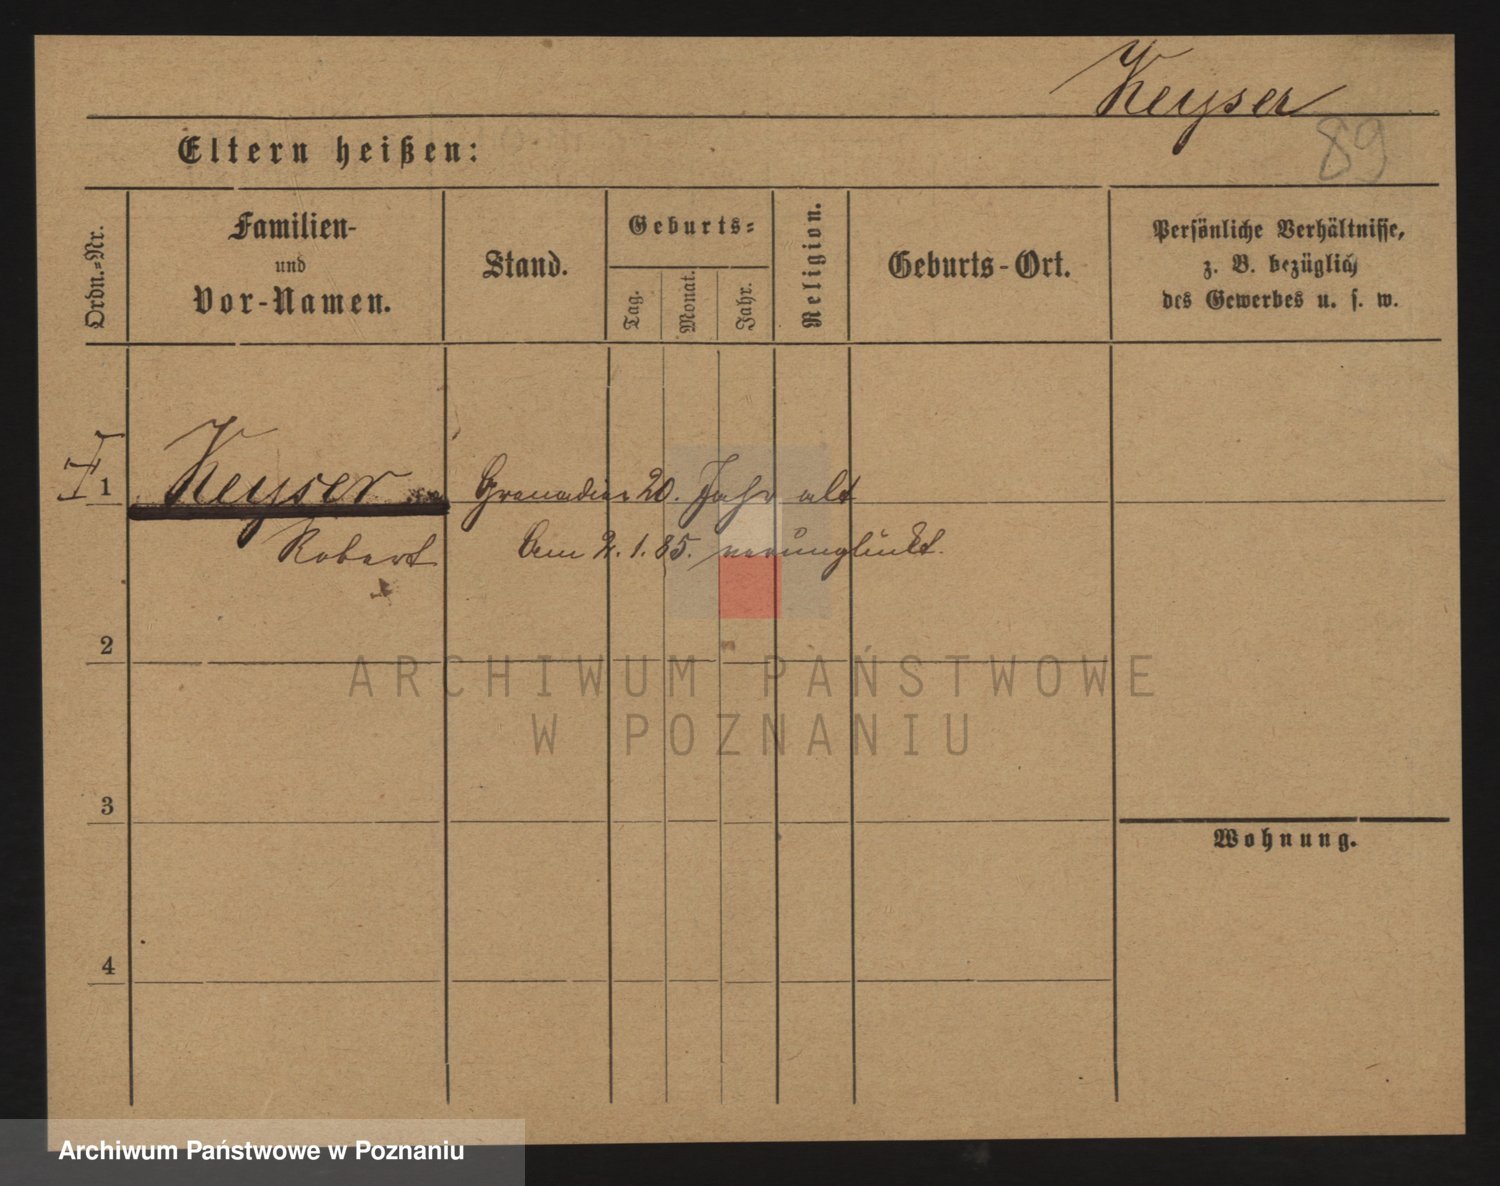 Keyser
89
Eltern heißen:
Ordn.=Nr.
Familien-
und
Vor-Namen.
Stand.
Geburts=
Tag.
Monat.
Jahr.
Religion.
Geburts-Ort.
Persönliche Verhältnisse,
z. B. bezüglich
des Gewerbes u. s. w.
1 Keyser Grenadier 20. Jahr alt
Robert Am 2. 1. 85. verunglückt.
2
ARCHIWUM PAŃSTWOWE
W POZNANIU
3
Wohnung.
4
Archiwum Państwowe w Poznaniu